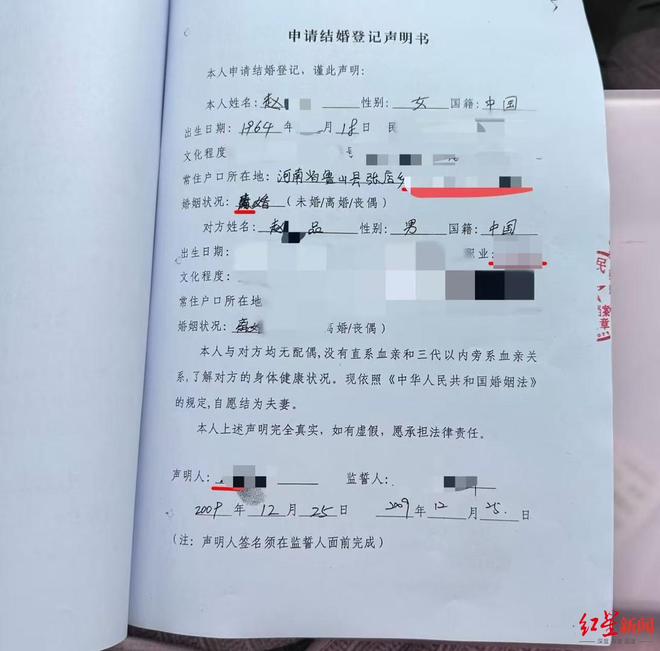 申请结婚登记声明书
本人申请结婚登记，谨此声明：
本人姓名：赵 性别：女 国籍：中国
出生日期：1964 年 月 18 日 民
文化程度
常住户口所在地：河南省鲁山县张店乡
婚姻状况：离婚（未婚/离婚/丧偶）
对方姓名：赵 品 性别：男 国籍：中国
出生日期： 职业：
文化程度：
常住户口所在地
婚姻状况： 离婚/丧偶）
本人与对方均无配偶，没有直系血亲和三代以内旁系血亲关
系，了解对方的身体健康状况。现依照《中华人民共和国婚姻法》
的规定，自愿结为夫妻。
本人上述声明完全真实，如有虚假，愿承担法律责任。
声明人： 监誓人：
2009 年 12 月 25 日 2009 年 12 月 25 日
（注：声明人签名须在监誓人面前完成）
民
档案
章
红星新闻